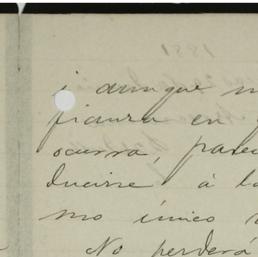 i aunque
figura en
ocurra,
ducirse á la
mo único
No perderá